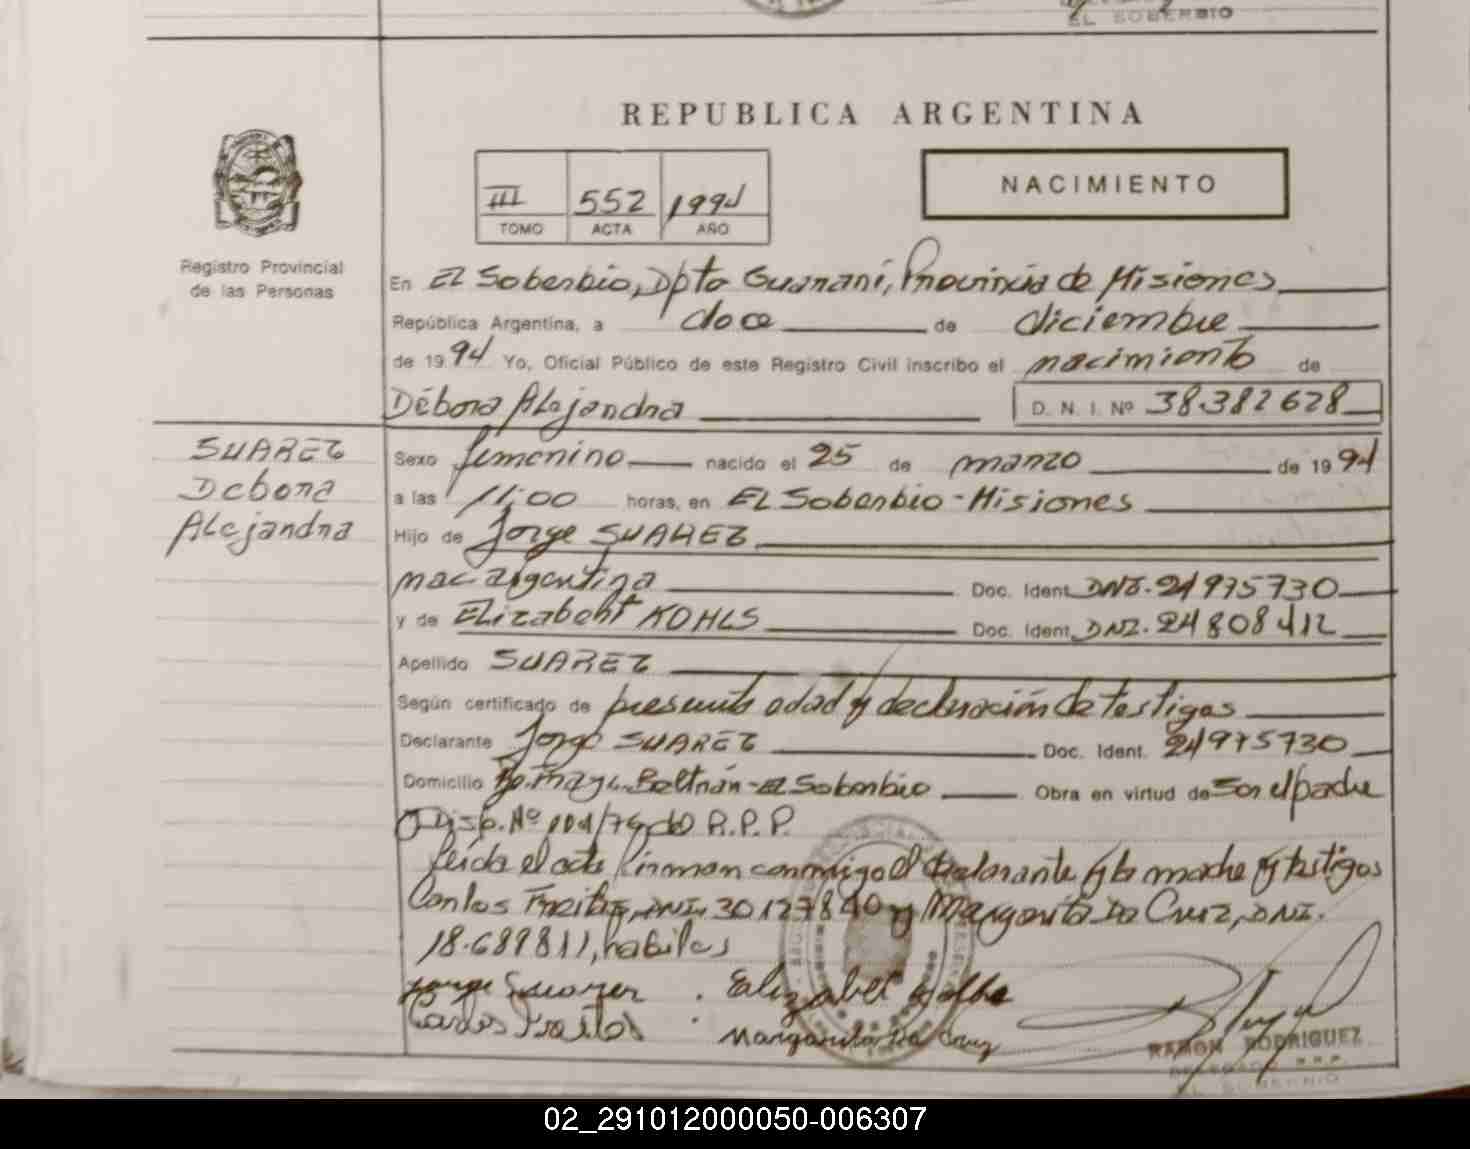 EL SOBERBIO
REPUBLICA ARGENTINA
NACIMIENTO
III 552 1994
TOMO ACTA AÑO
Registro Provincial
de las Personas
En EL Soberbio, Dpto Guaraní, Provincia de Misiones
República Argentina, a doce de diciembre
de 1994 Yo, Oficial Público de este Registro Civil inscribo el nacimiento de
Débora Alejandra D. N. I. Nº 38.382628
SUAREZ
Debora
Alejandra
Sexo femenino nacido el 25 de marzo de 1994
a las 11:00 horas, en EL Soberbio - Misiones
Hijo de Jorge SUAREZ
nac argentina Doc. Ident. DNI. 21975730
y de Elizabeht KOHLS Doc. Ident. DNI. 24808412
Apellido SUAREZ
Según certificado de presunta edad y declaración de testigos
Declarante Jorge SUAREZ Doc. Ident. 21975730
Domicilio Beltrán - El Soberbio Obra en virtud de Ser el padre
Disp. Nº R.P.P.
Leida el acta firman conmigo el declarante y la madre y testigos
Carlos DNI. 30127840 y Margarita Da Cruz, DNI.
18.689811, habiles
Jorge Suarez Elizabet
Carlos Margarita Da Cruz
RAMON RODRIGUEZ
DELEGADO R.R.P.
EL SOBERBIO
02_291012000050-006307